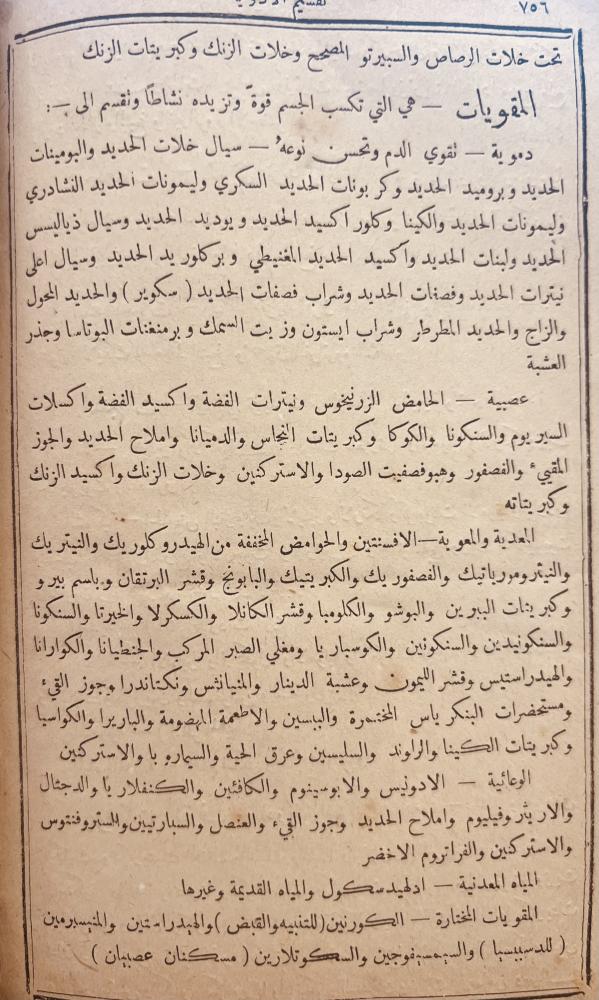 ٧٥٦
تحت خلات الرصاص والسبيرتو المصحح وخلات الزنك وكبريتات الزنك
المقويات — هي التي تكسب الجسم قوة وتزيده نشاطًا وتقسم الى :—
دموية — تقوي الدم وتحسن نوعه — سيال خلات الحديد والبومينات
الحديد وبروميد الحديد وكربونات الحديد السكري وليمونات الحديد النشادري
وليمونات الحديد والكينا وكلوراكسيد الحديد ويوديد الحديد وسيال ذياليسس
الحديد ولبنات الحديد واكسيد الحديد المغنيطي وبركلوريد الحديد وسيال اعلى
نيترات الحديد وفصفات الحديد وشراب فصفات الحديد ( سكوير ) والحديد المحول
والزاج والحديد المطرطر وشراب ايستون وزيت السمك وبرمنغنات البوتاسا وجذر
العشبة
عصبية — الحامض الزرنيخوس ونيترات الفضة واكسيد الفضة واكسلات
السيريوم والسنكونا والكوكا وكبريتات النحاس والدميانا واملاح الحديد والجوز
المقيىء والفصفور وهبوفصفيت الصودا والاستركنين وخلات الزنك واكسيد الزنك
وكبريتاته
المعدية والمعوية — الافسنتين والحوامض المخففة من الهيدروكلوريك والنيتريك
والنيترومورياتيك والفصفوريك والكبريتيك والبابونج وقشر البرتقان وباسم بيرو
وكبريتات الببرين والبوشو والكلومبا وقشر الكانلا والكسكرلا والخيرتا والسنكونا
والسنكونيدين والسنكونين والكوسباريا ومغلي الصبر المركب والجنطيانا والكوارانا
والهيدراستيس وقشر الليمون وعشبة الدينار والمنيانثس ونكتاندرا وجوز القيء
ومستحضرات البنكرياس المختمرة والببسين والاطعمة المهضومة والباريرا والكواسيا
وكبريتات الكينا والراوند والسليسين وعرق الحية والسيماروبا والاستركنين
الوعائية — الادونيس والابوسينوم والكافئين والكنفلاريا والدجتال
والاريثروفيليوم واملاح الحديد وجوز القيء والعنصل والسبارتيين والستروفنتوس
والاستركنين والفراتروم الاخضر
المياه المعدنية — ادلهيدسكول والمياه القديمة وغيرها
المقويات المختارة — الكورنين (للتنبيه والقبض) والهيدراستين والمنيسبرمين
( للدسبيسيا ) والسيمسيفوجين والسكوتلارين ( مسكنان عصبيان )